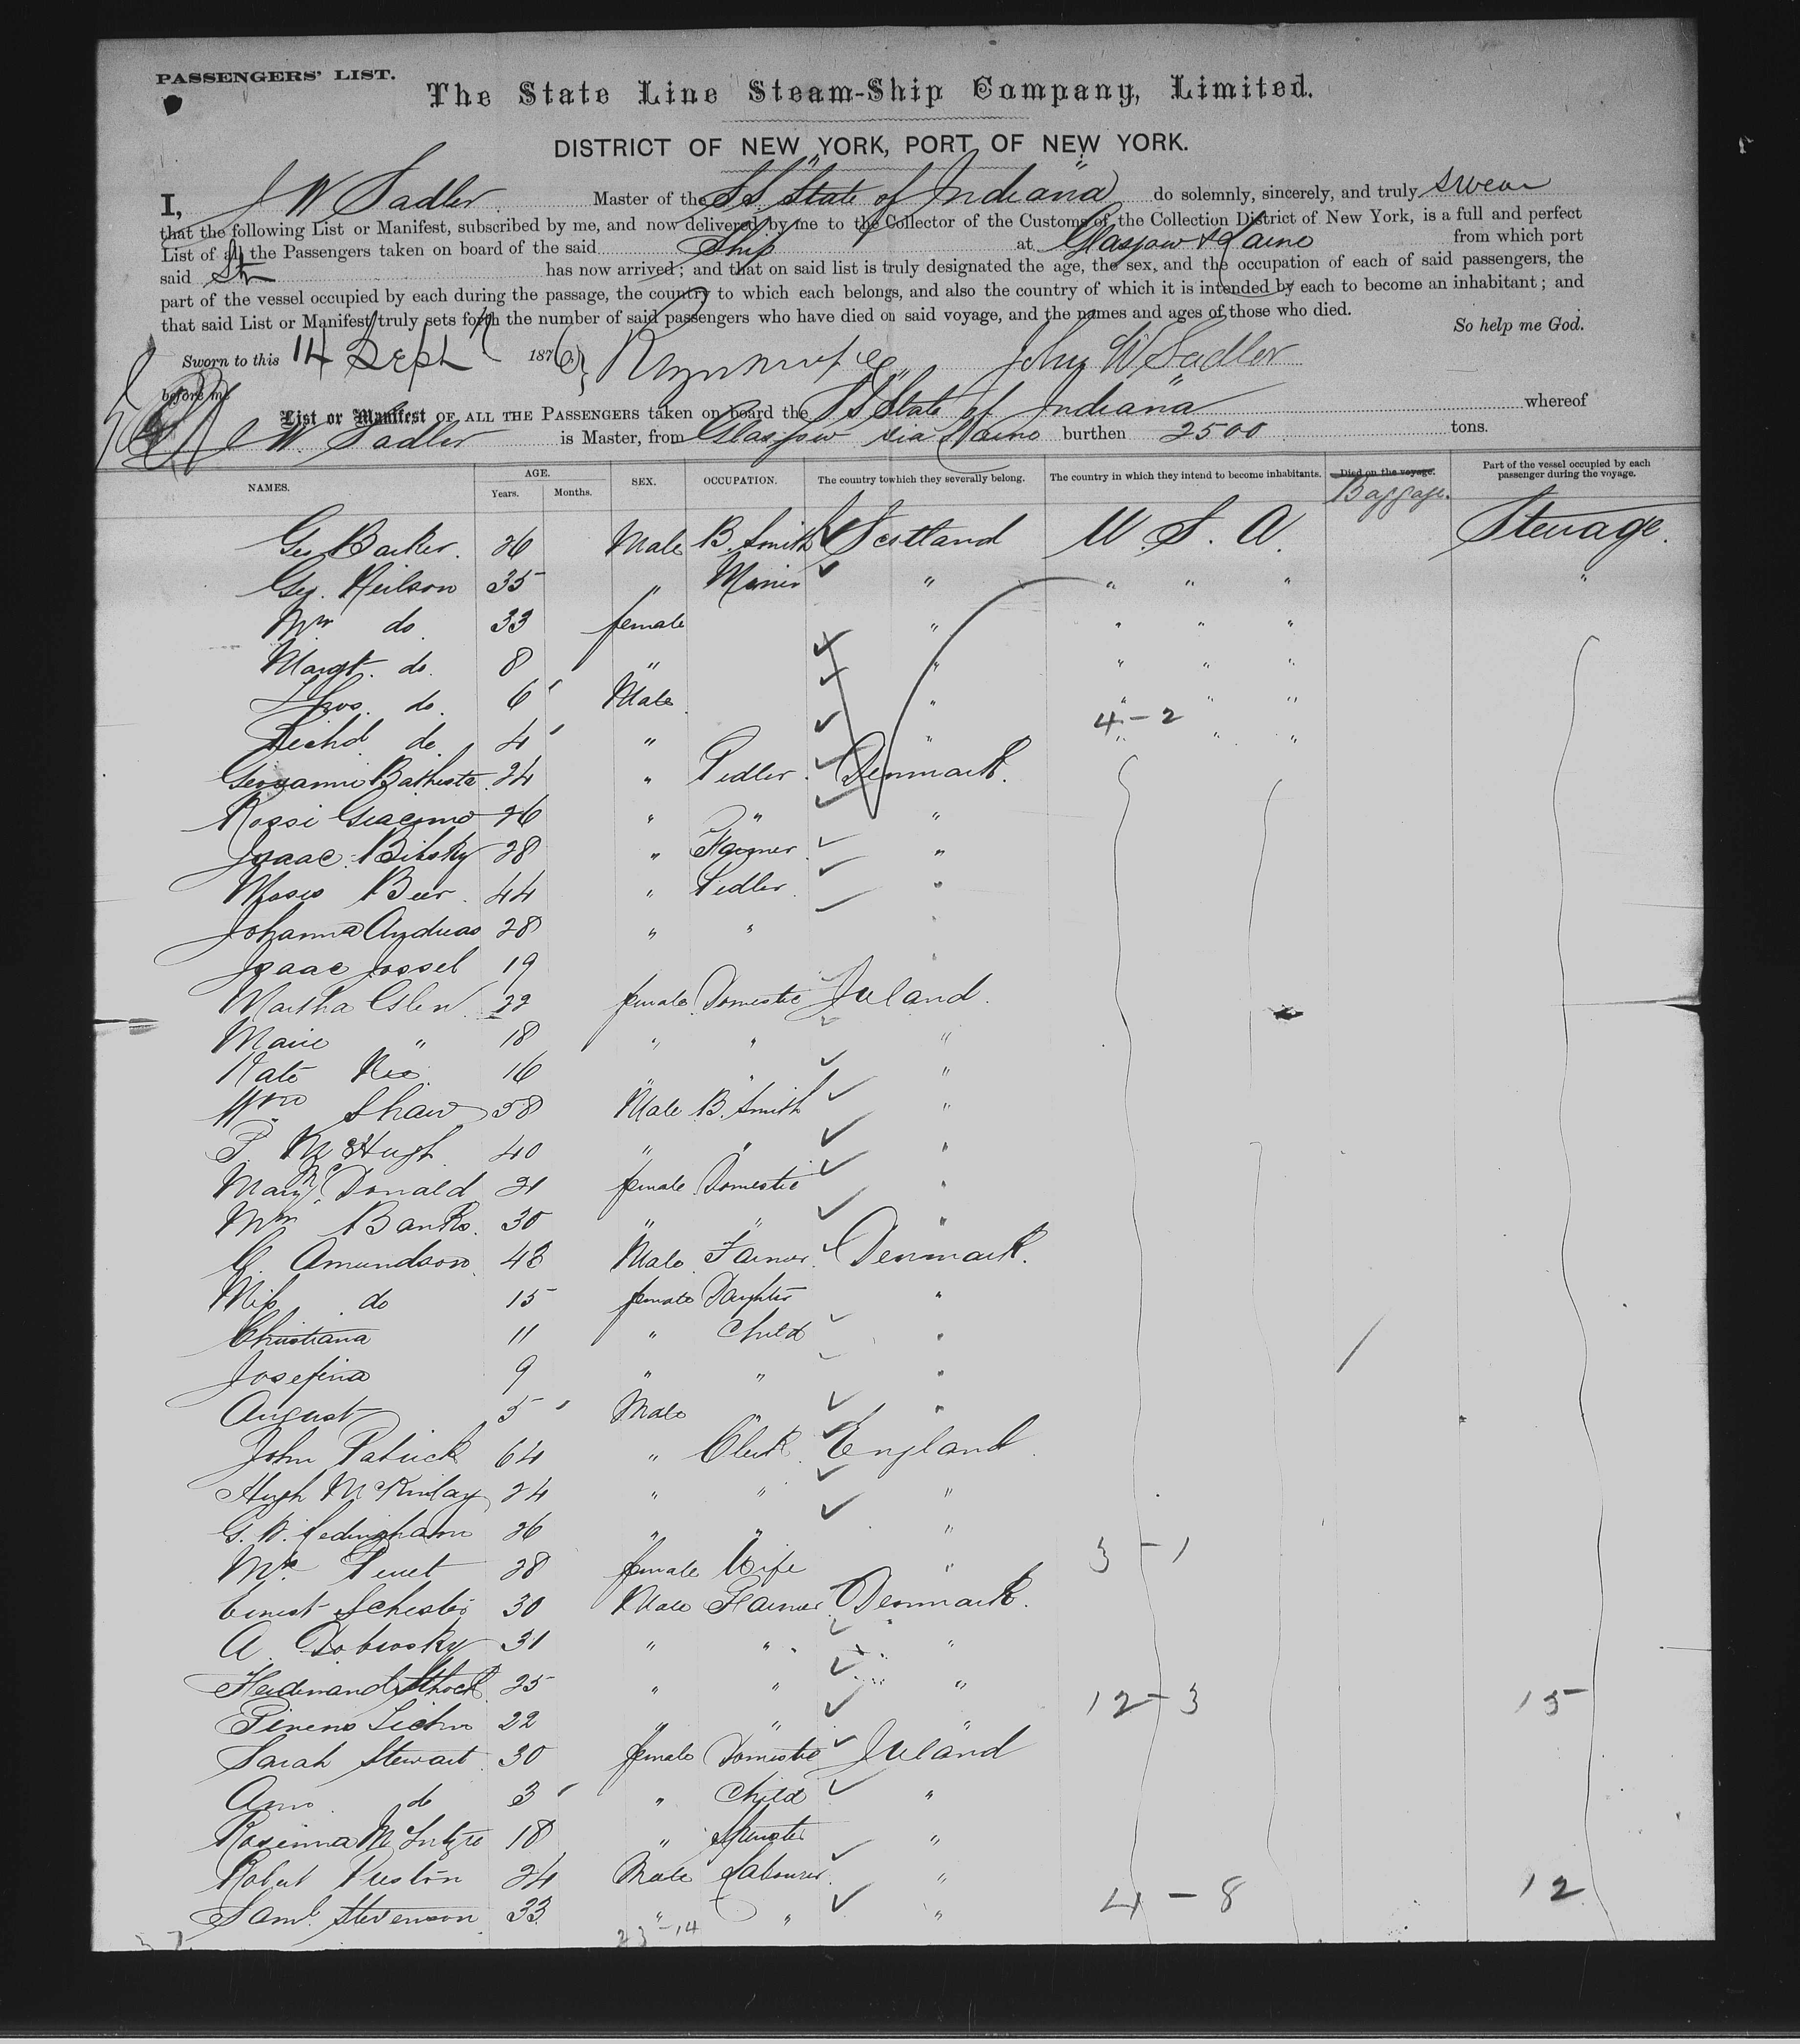 PASSENGERS' LIST.
The State Line Steam-Ship Company, Limited.
DISTRICT OF NEW YORK, PORT OF NEW YORK.
I, J W Sadler Master of the S.S. "State of Indiana" do solemnly, sincerely, and truly swear
that the following List or Manifest, subscribed by me, and now delivered by me to the Collector of the Customs of the Collection District of New York, is a full and perfect
List of all the Passengers taken on board of the said Ship at Glasgow & Larne from which port
said Str has now arrived; and that on said list is truly designated the age, the sex, and the occupation of each of said passengers, the
part of the vessel occupied by each during the passage, the country to which each belongs, and also the country of which it is intended by each to become an inhabitant; and
that said List or Manifest truly sets forth the number of said passengers who have died on said voyage, and the names and ages of those who died.
So help me God.
Sworn to this 14 Sept 1876 John W Sadler
before me
List or Manifest OF ALL THE PASSENGERS taken on board the SS "State of Indiana" whereof
J W Sadler is Master, from Glasgow via Larne burthen 2500 tons.
NAMES. AGE. Years. Months. SEX. OCCUPATION. The country to which they severally belong. The country in which they intend to become inhabitants. Died on the voyage. Baggage. Part of the vessel occupied by each passenger during the voyage.
Geo Barker. 26 Male B. Smith Scotland U. S. A. Steerage.
Geo. Neilson 35 " Miner " " " " "
Mrs do. 33 female " " " "
Margt. do. 8 " " " " "
Thos. do. 6 Male " " " "
Richd do 4 " " 4-2 " " "
Giovanni Bathista 24 " Pedler Denmark.
Rossi Giacomo 26 " " "
Isaac Bilsky 28 " Farmer "
Moses Beer. 44 " Pedler. "
Johanna Andreas 28 " " "
Isaac Jossel 19 "
Martha Glen 22 female Domestic Ireland.
Marie " 18 " " "
Kate 16 " " "
Wm Shaw 58 Male B. Smith "
P. McHugh 40 " " "
Mary McDonald 21 female Domestic "
Mrs Banks. 30 " " "
C. Amundson 43 Male Farmer Denmark.
Miss do 15 female Daughter "
Christiana 11 " Child "
Josefina 9 " " "
August 5 Male " "
John Patrick 64 " Clerk England
Hugh McKinlay 24 " " "
G. W. Ledingham 26 " " "
Mrs 28 female Wife " 3-1
Ernest 30 Male Farmer Denmark.
A. 31 " " "
Ferdinand 25 " " " 12-3 15
22 " " "
Sarah Stewart 30 female Domestic Ireland
Ann do 3 " Child "
Rosenna McIntyre 18 " Spinster "
Robert Preston 24 Male Labourer. "
Saml. Stevenson. 33 " " " 4-8 12
23-14